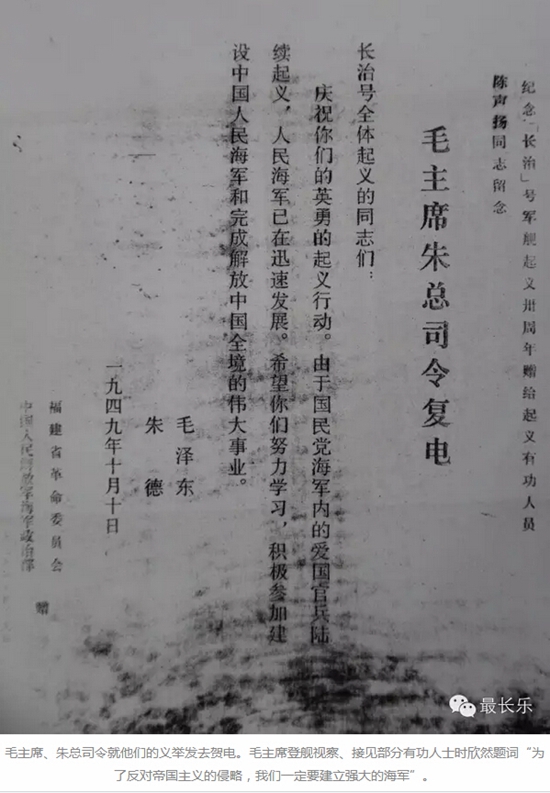 纪念「长治」号军舰起义卅周年赠给起义有功人员
陈声扬同志留念
毛主席朱总司令复电
长治号全体起义的同志们：
庆祝你们的英勇的起义行动。由于国民党海军内的爱国官兵陆
续起义，人民海军已在迅速发展。希望你们努力学习，积极参加建
设中国人民海军和完成解放中国全境的伟大事业。
毛泽东
朱德
一九四九年十月十日
福建省革命委员会
中国人民解放军海军政治部
赠
最长乐
毛主席、朱总司令就他们的义举发去贺电。毛主席登舰视察、接见部分有功人士时欣然题词“为
了反对帝国主义的侵略，我们一定要建立强大的海军”。